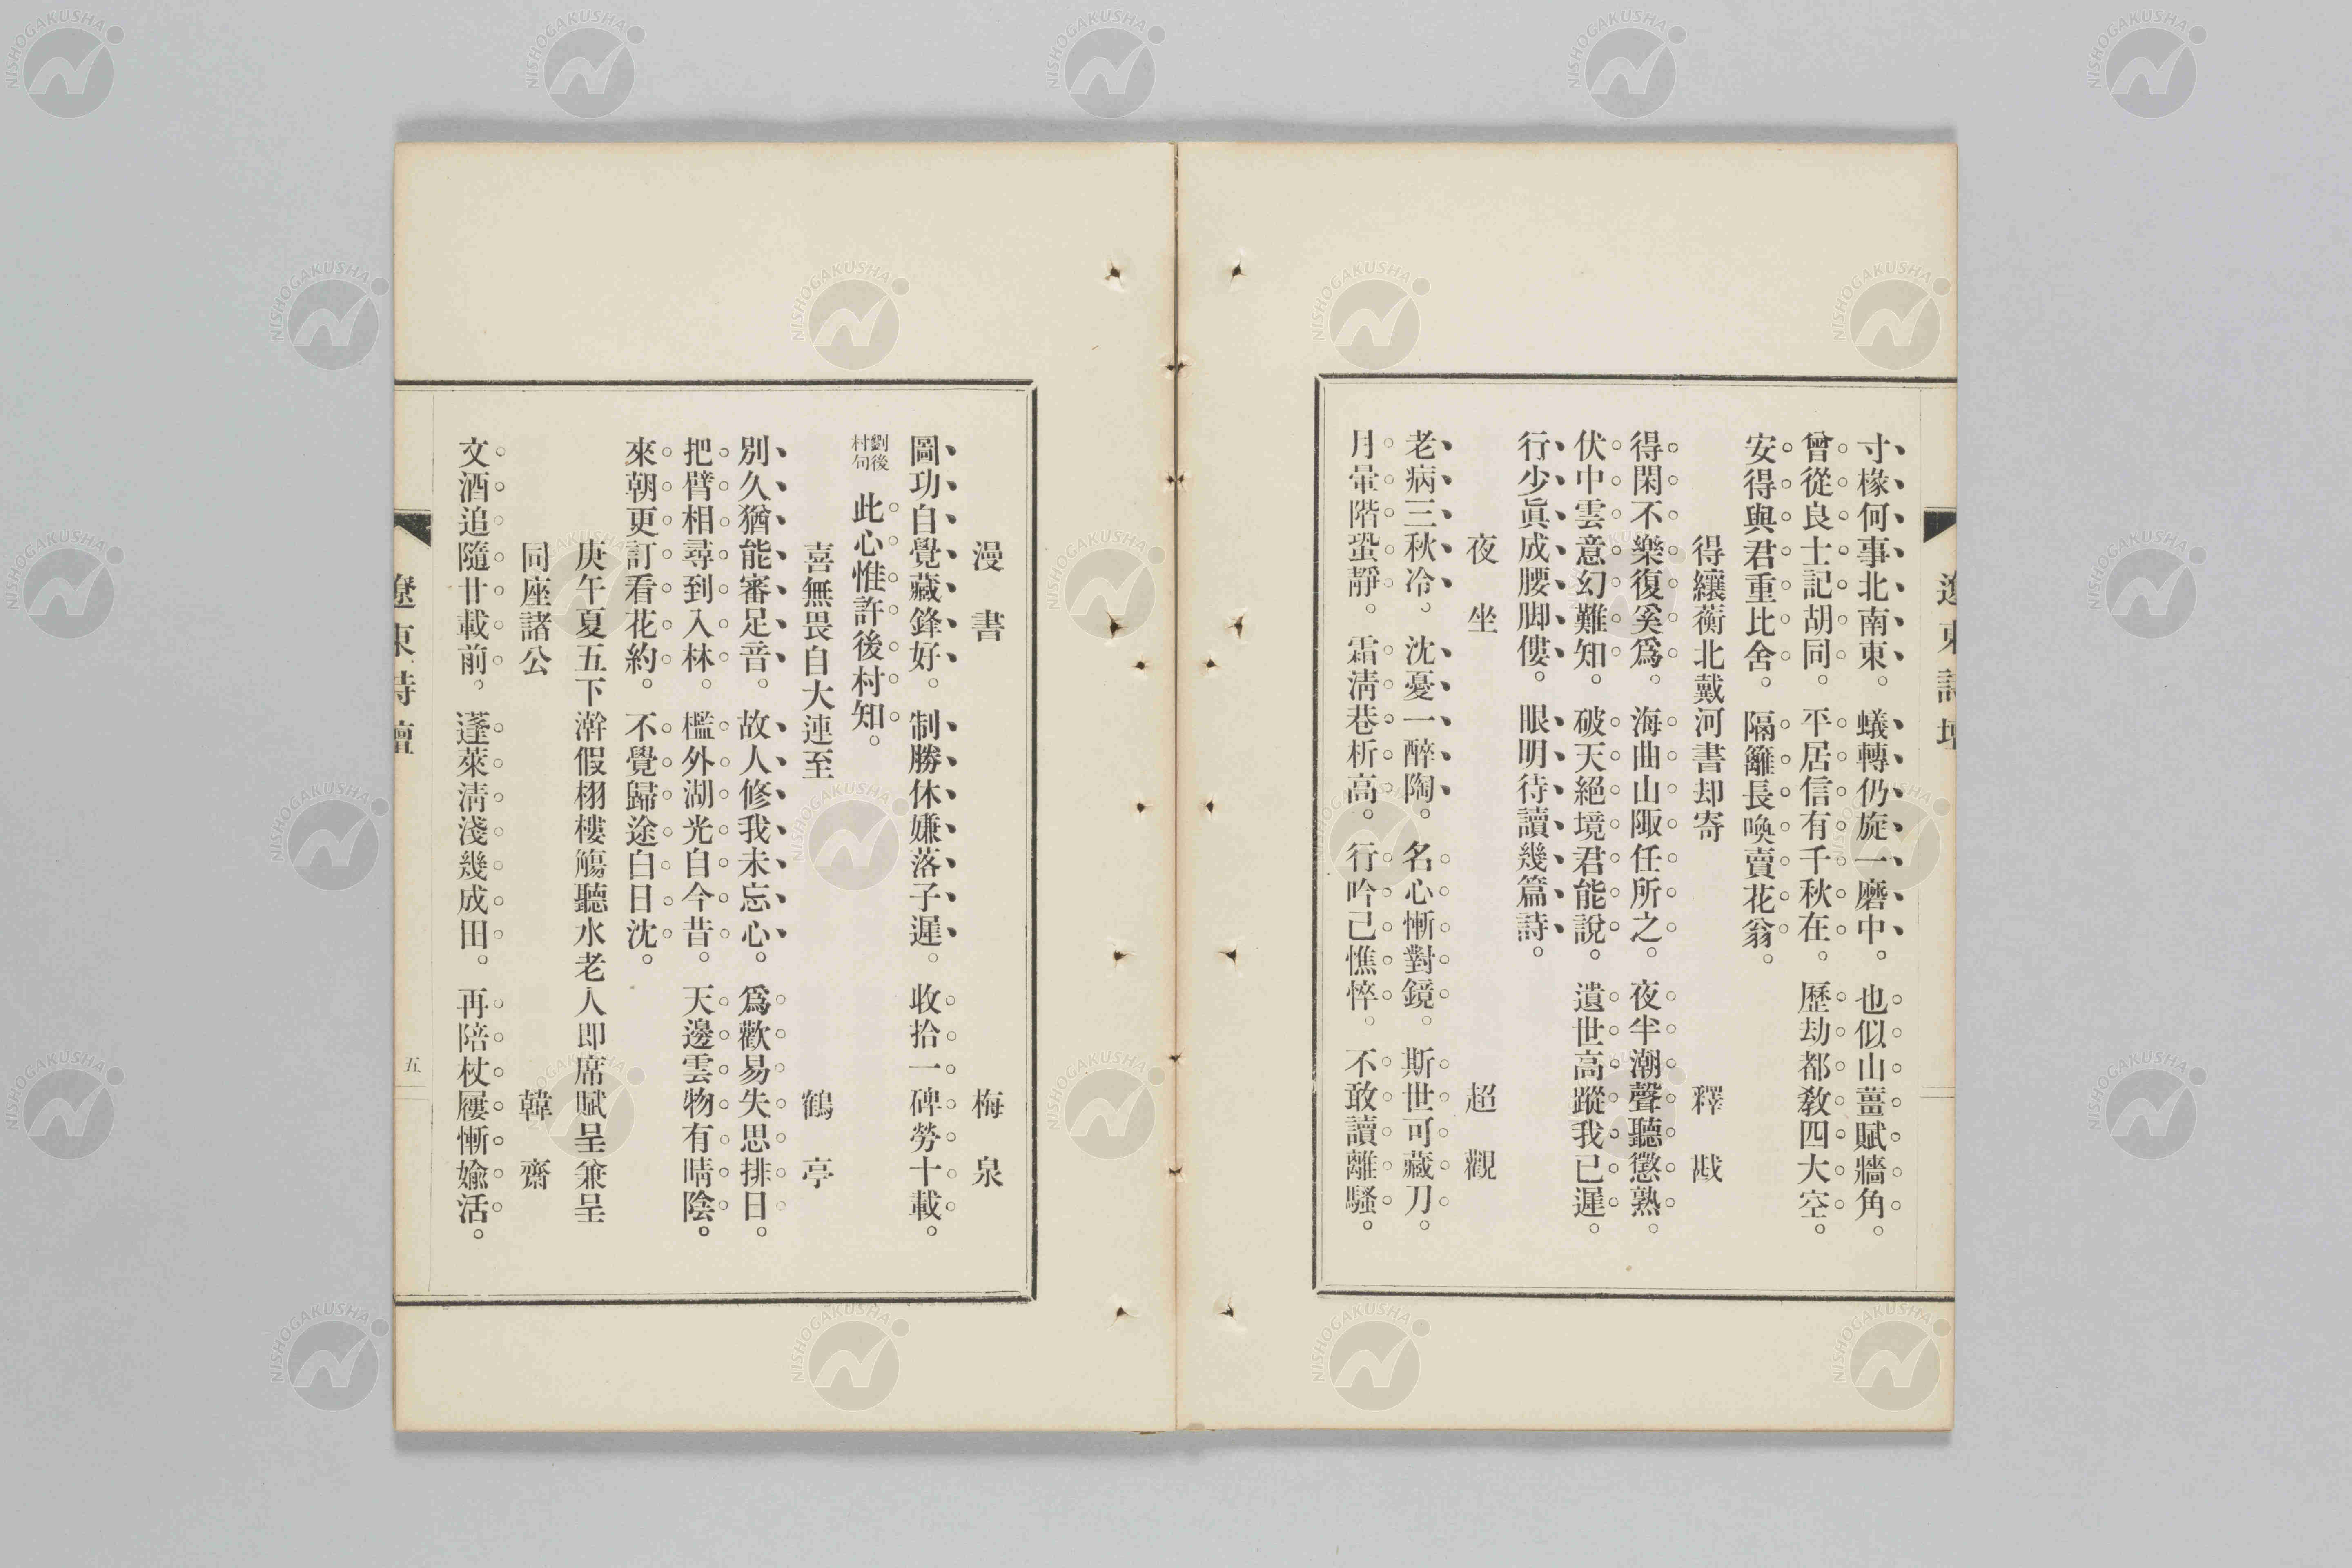 寸椽何事北南東。蟻轉仍旋一磨中。也似山薑賦牆角。
曾從良士記胡同。平居信有千秋在。歷劫都教四大空。
安得與君重比舍。隔籬長喚賣花翁。
得纕蘅北戴河書却寄　釋戡
得閑不樂復奚爲。海曲山陬任所之。夜半潮聲聽慾熟。
伏中雲意幻難知。破天絕境君能說。遺世高蹤我已遲。
行少眞成腰脚僂。眼明待讀幾篇詩。
夜坐　超觀
老病三秋冷。沈憂一醉陶。名心慚對鏡。斯世可藏刀。
月暈階蛩靜。霜淸巷柝高。行吟已憔悴。不敢讀離騷。
漫書　梅泉
圖功自覺藏鋒好。制勝休嫌落子遲。收拾一碑勞十載。
劉後村句 此心惟許後村知。
喜無畏自大連至　鶴亭
別久猶能審足音。故人修我未忘心。爲歡易失思排日。
把臂相尋到入林。檻外湖光自今昔。天邊雲物有晴陰。
來朝更訂看花約。不覺歸途白日沈。
庚午夏五下澣假栩樓觴聽水老人即席賦呈兼呈
同座諸公　韓齋
文酒追隨廿載前。蓬萊淸淺幾成田。再陪杖屨慚婾活。
遼東詩壇
五
NISHOGAKUSHA